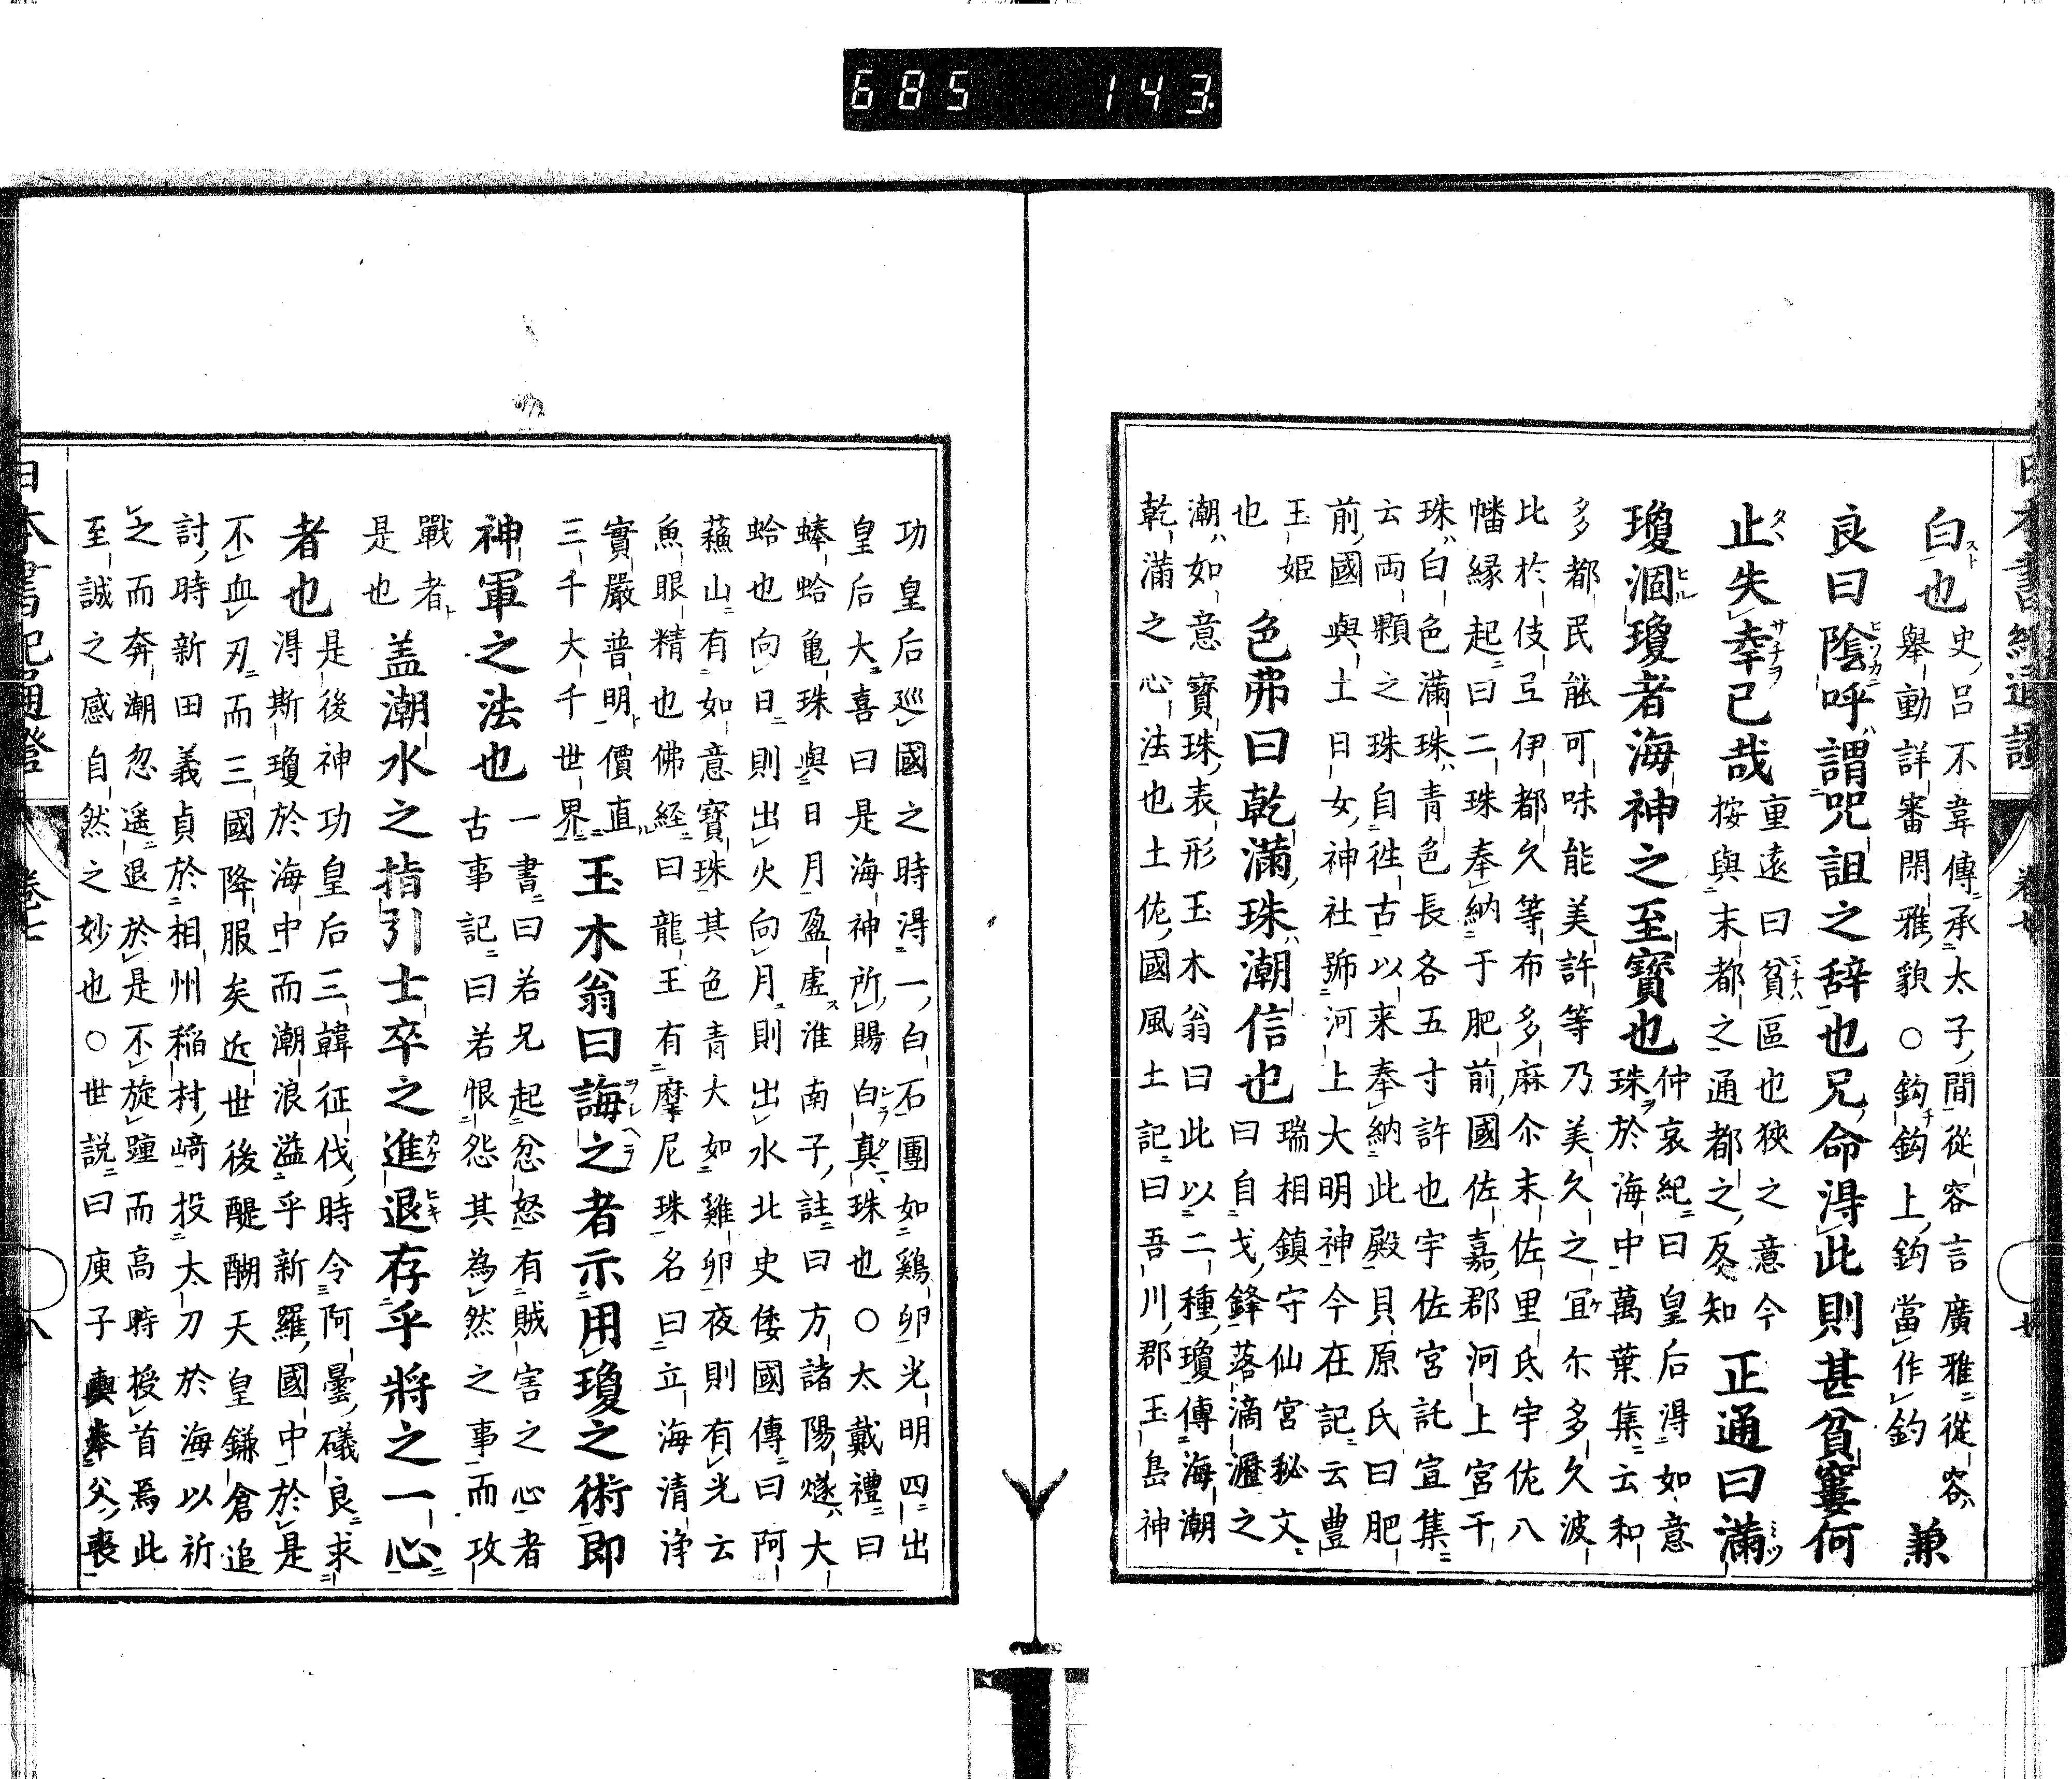 685 143
白也
史呂不韋傳承太子間從容言廣雅從容
舉動詳審閑雅貌○鈎鈎上鈎當作釣
兼
良曰陰呼謂咒詛之辞也兄命得此則甚貧窶何
止失幸已哉
重遠曰貧區也狹之意今
按與末都之通都之反知
正通曰滿
瓊涸瓊者海神之至寳也
仲哀紀曰皇后得如意
珠於海中萬葉集云和
多都民能可味能美許等乃美久之宜尓多久波
比於伎弖伊都久等布多麻尓末佐里氐宇佐八
幡縁起曰二珠奉納于肥前國佐嘉郡河上宮干
珠白色滿珠青色長各五寸許也宇佐宮託宣集
云両顆之珠自徃古以来奉納此殿貝原氏曰肥
前國與土日女神社號河上大明神今在記云豊
玉姫
也
色弗曰乾滿珠潮信也
瑞相鎮守仙宮秘文
曰自戈鋒落滴瀝之
潮如意寳珠表形玉木翁曰此以二種瓊傳海潮
乾滿之心法也土佐國風土記曰吾川郡玉島神
功皇后巡國之時得一白石團如鷄卵光明四出
皇后大喜曰是海神所賜白真珠也○太戴禮曰
蜯蛤亀珠與日月盈虚淮南子註曰方諸陽燧大
蛤也向日則出火向月則出水北史倭國傳曰阿
蘓山有如意寳珠其色青大如雞卵夜則有光云
魚眼精也佛経曰龍王有摩尼珠名曰立海清浄
實嚴普明價直
三千大千世界
玉木翁曰誨之者示用瓊之術即
神軍之法也
一書曰若兄起忿怒有賊害之心者
古事記曰若恨怨其為然之事而攻
戰者
是也
盖潮水之指引士卒之進退存乎將之一心
者也
是後神功皇后三韓征伐時令阿曇礒良求
得斯瓊於海中而潮浪溢乎新羅國中於是
不血刃而三國降服矣近世後醍醐天皇鎌倉追
討時新田義貞於相州稲村﨑投太刀於海以祈
之而奔潮忽遥退於是不旋踵而高時授首焉此
至誠之感自然之妙也○世説曰庾子輿奉父喪
日本書紀通證
卷七